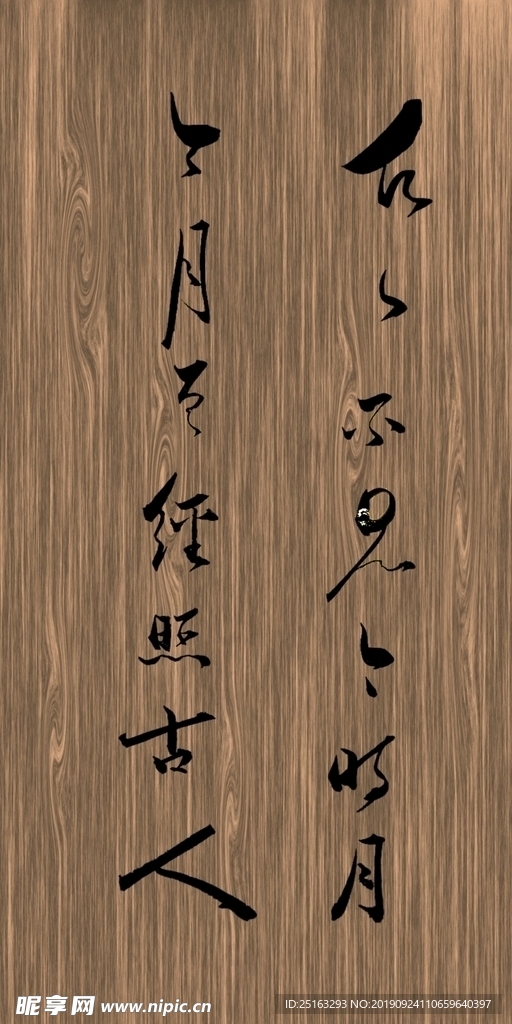 古人不見今時月
今月曾經照古人
昵享网 www.nipic.cn
ID:25163293 NO:20190924110659640397